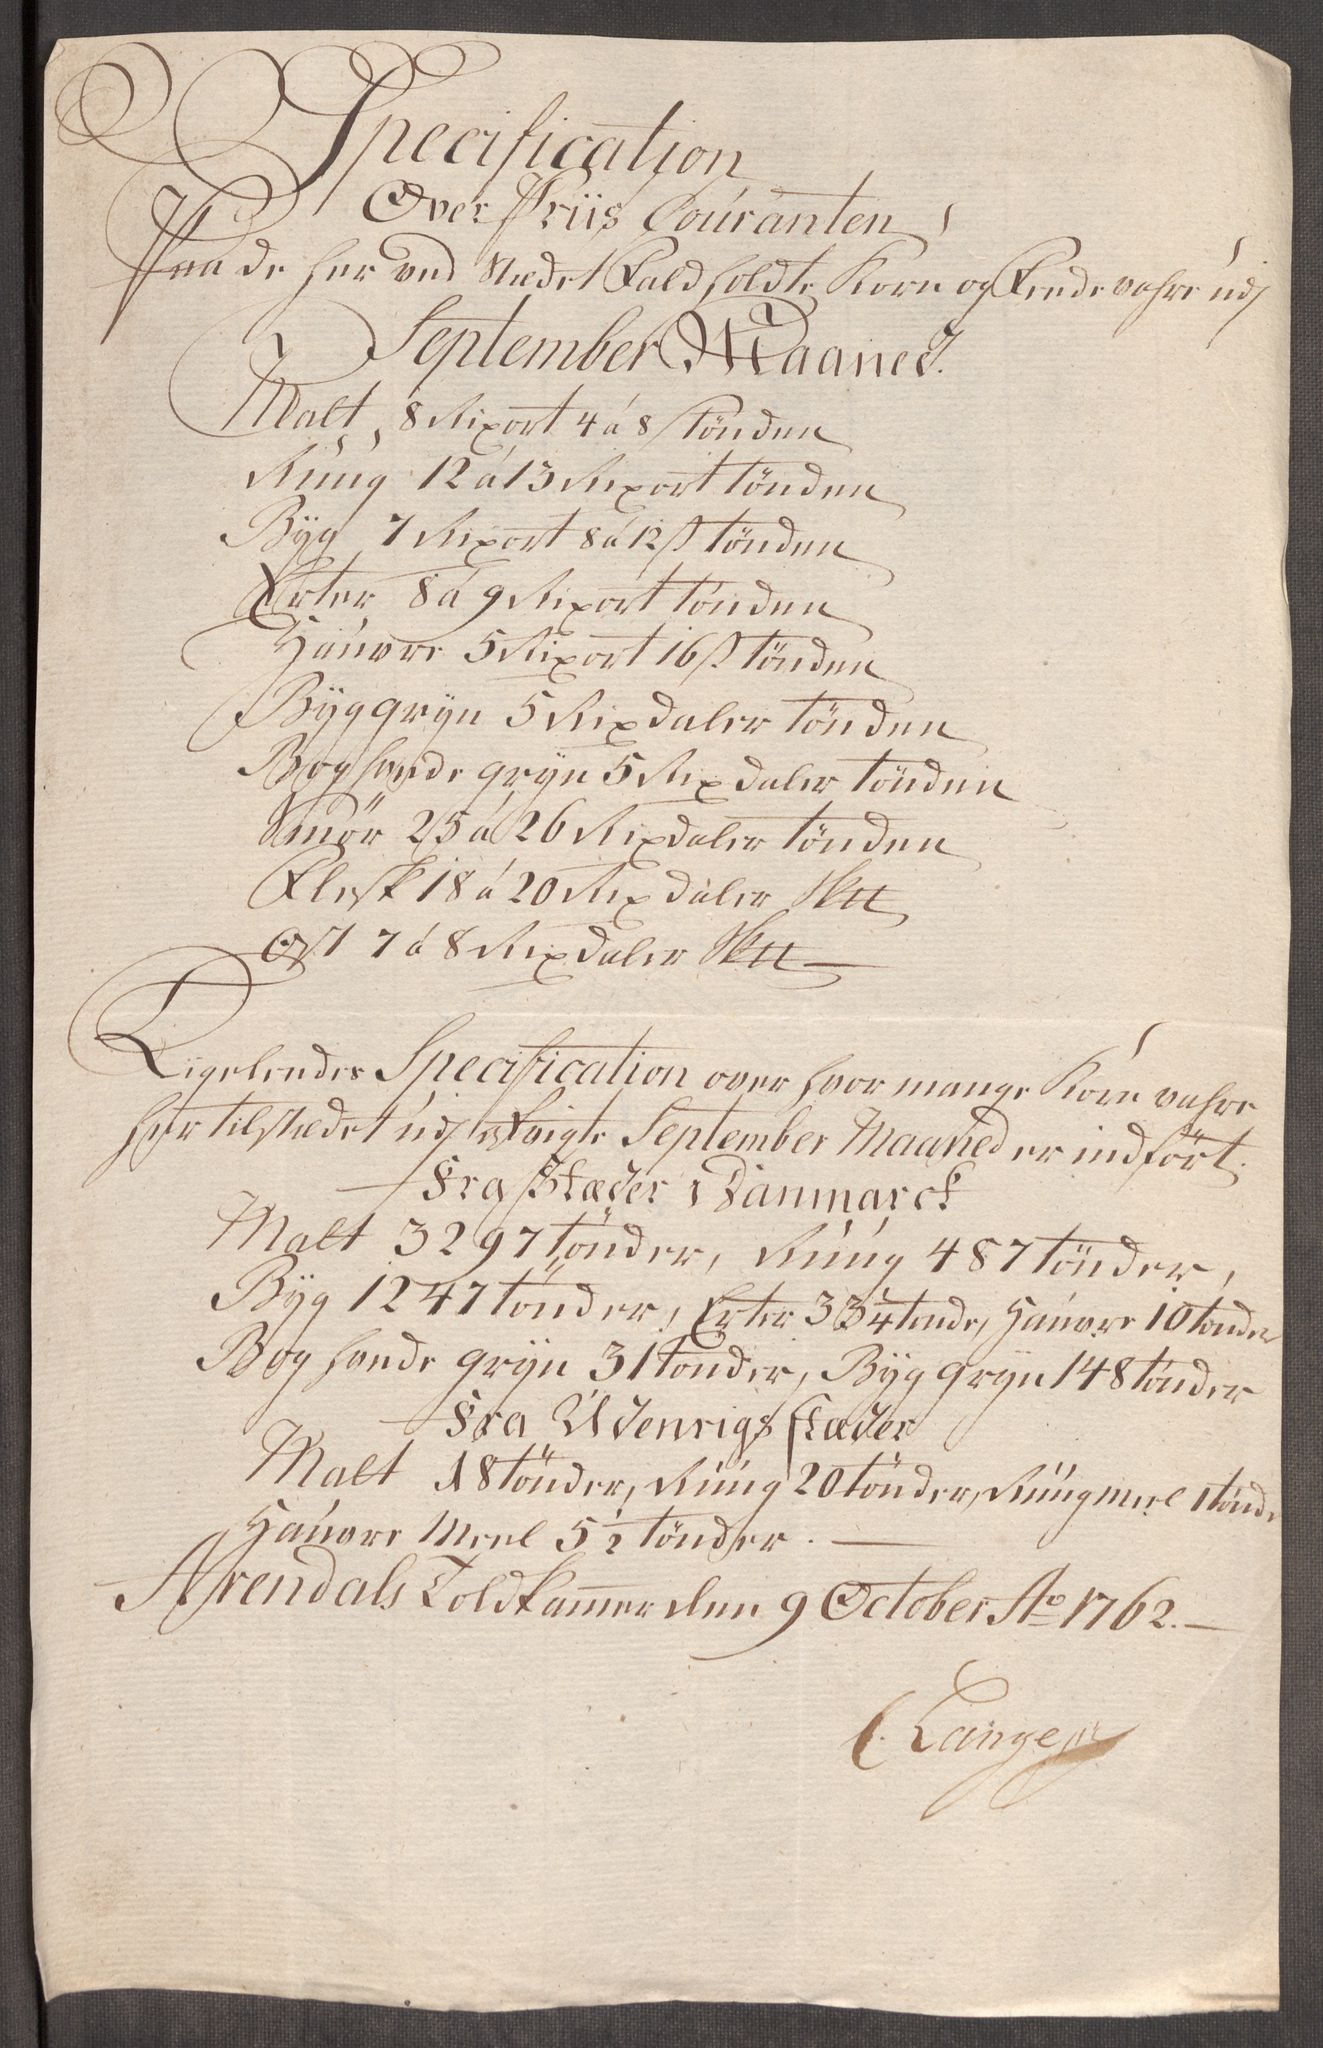 Specification
Over Priis Couranten
Paa de her ved Stædet Faldholdte Korn og Fædevahre udj
September Maaned.
Malt, 8 Rixort 4 á 8 s tönden
Rúúg 12 á 13 Rixort tönden
Byg 7 Rixort 8 á 12 ß tönden
Erter 8 á 9 Rixort tönden
Haúvre 5 Rixort 16 ß tönden
Byggryn 5 Rixdaler tönden
Boghvede gryn 5 Rixdaler tönden
Smör 25 á 26 Rixdaler tönden
Flesk 18 á 20 Rixdaler Sk℔
Ost 7 á 8 Rixdaler Sk℔
Ligeledes Specification over hvor mange Korn vahre
her til Stædet údj September Maaned er indfört.
Fra Stæder i Danmarck
Malt 3297 tönder, Rúúg 487 tönder,
Byg 1247 tönder, Erter 33¼ tönde, Haúvre 10 tönder
Boghvede gryn 31 tönder, Byggryn 148 tönder
Fra Udenrigs stæder
Malt 18 tönder, Rúúg 20 tönder, Rúúgmeel 1 tönde
Haúvre Meel 5½ tönder.
Arendals Toldkammer den 9 October Ao 1762.
C. Lange